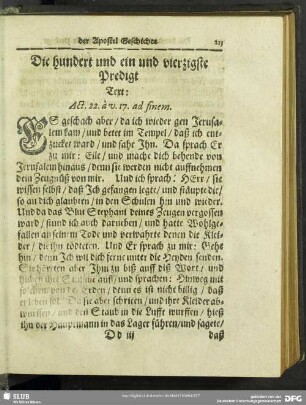 der Apostel Geschichte 213
Die hundert und ein und vierzigste
Predigt
Text:
Act. 22. à v. 17. ad finem.
ES geschach aber / da ich wieder gen Jerusa-
lem kam / und betet im Tempel / daß ich ent-
zucket ward / und sahe Ihn. Da sprach Er
zu mir: Eile / und mache dich behende von
Jerusalem hinaus / denn sie werden nicht auffnehmen
dein Zeugnis von mir. Und ich sprach: HErr / sie
wissen selbst / daß Ich gefangen legte / und stäupte die /
so an dich glaubten / in den Schulen hin und wieder.
Und da das Blut Stephani deines Zeugen vergossen
ward / stund ich auch darneben / und hatte Wohlge-
fallen an seinem Tode und verwahrte denen die Klei-
der / die ihn tödteten. Und Er sprach zu mir: Gehe
hin / denn Ich wil dich ferne unter die Heyden senden.
Sie höreten aber Ihm zu biß auff diß Wort / und
huben ihre Stimme auff / und sprachen: Hinweg mit
solchem von der Erden / denn es ist nicht billig / daß
er leben sol. Da sie aber schrien / und ihre Kleider ab-
wurffen / und den Staub in die Lufft wurffen / hieß
ihn der Hauptmann in das Lager führen / und sagete /
Dd iij daß
SLUB
DFG